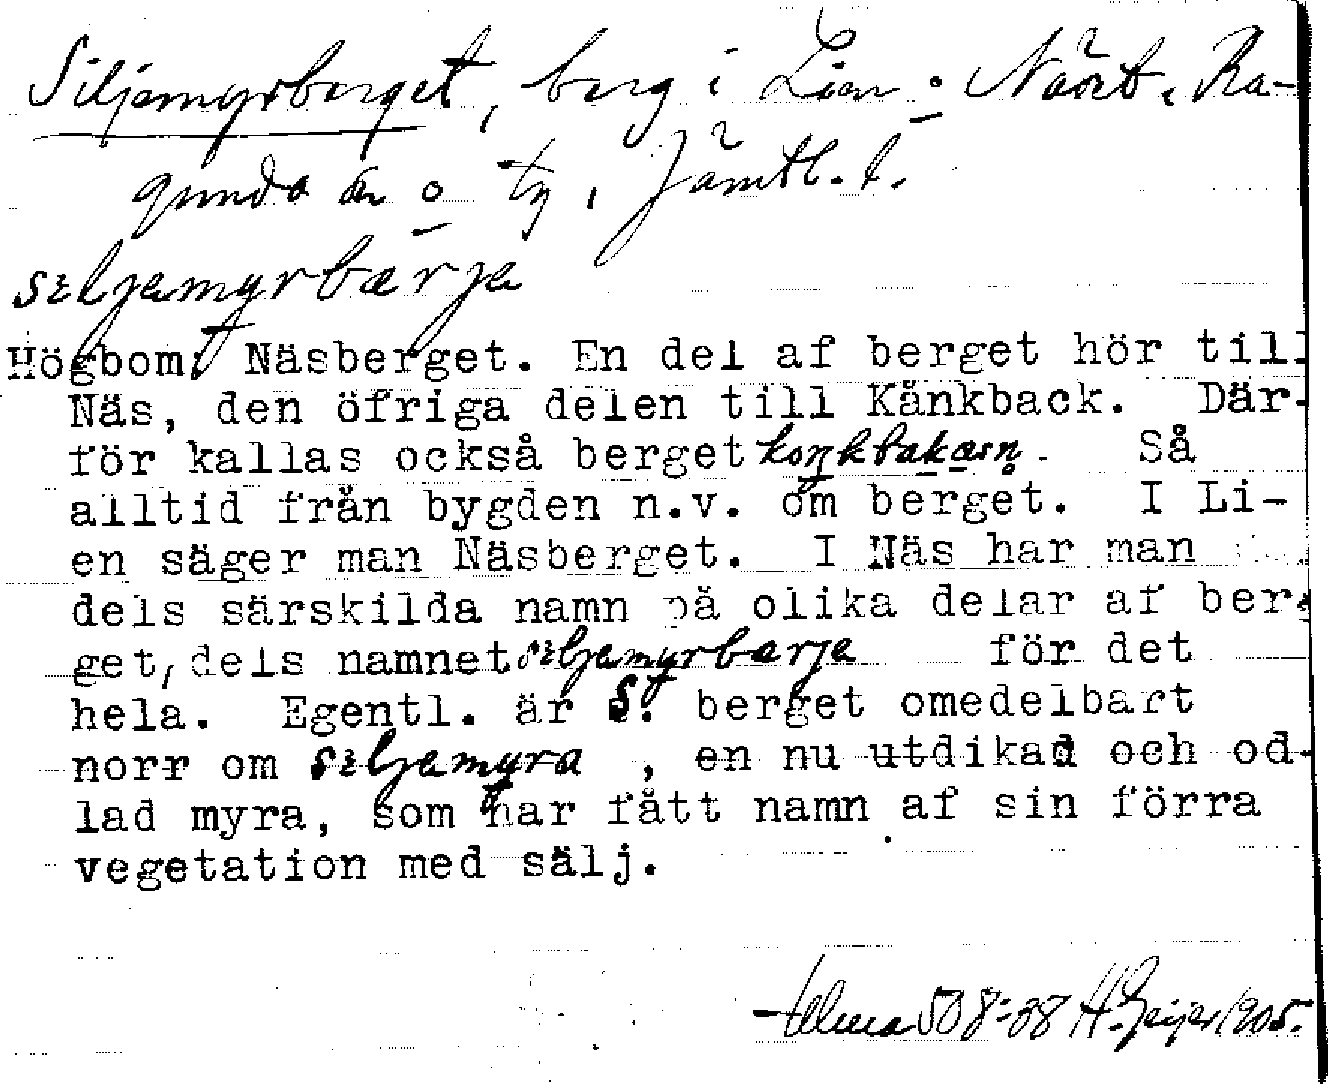 Siljemyrberget, berg i Lien o Näset. Ra-
gunda sn o tg, Jämtl. l.
sɛljemyrbærje
Högbom: Näsberget. En del af berget hör till
Näs, den öfriga delen till Kånkback. Där-
för kallas också berget koŋkbakæsn̥. Så
alltid från bygden n.v. om berget. I Li-
en säger man Näsberget. I Näs har man
dels särskilda namn på olika delar af ber-
get, dels namnet sɛljemyrbærje för det
hela. Egentl. är S. berget omedelbart
norr om sɛljemyra, en nu utdikad och od-
lad myra, som har fått namn af sin förra
vegetation med sälj.
508:38 H. Geijer 1905.